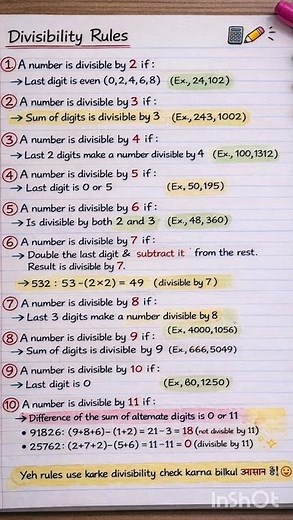 Divisibility Rules
① A number is divisible by 2 if :
→ Last digit is even (0, 2, 4, 6, 8) (Ex., 24, 102)
② A number is divisible by 3 if :
→ Sum of digits is divisible by 3 (Ex., 243, 1002)
③ A number is divisible by 4 if :
→ Last 2 digits make a number divisible by 4 (Ex., 100, 1312)
④ A number is divisible by 5 if :
→ Last digit is 0 or 5 (Ex, 50, 195)
⑤ A number is divisible by 6 if :
→ Is divisible by both 2 and 3 (Ex., 48, 360)
⑥ A number is divisible by 7 if :
→ Double the last digit & subtract it from the rest.
Result is divisible by 7.
→ 532 : 53 - (2×2) = 49 (divisible by 7)
⑦ A number is divisible by 8 if :
→ Last 3 digits make a number divisible by 8
(Ex. 4000, 1056)
⑧ A number is divisible by 9 if :
→ Sum of digits is divisible by 9 (Ex., 666, 5049)
⑨ A number is divisible by 10 if :
→ Last digit is 0 (Ex, 80, 1250)
⑩ A number is divisible by 11 if :
→ Difference of the sum of alternate digits is 0 or 11
• 91826: (9+8+6) - (1+2) = 21 - 3 = 18 (not divisble by 11)
• 25762: (2+7+2) - (5+6) = 11 - 11 = 0 (divisible by 11)
Yeh rules use karke divisibility check karna bilkul आसान है!
InShOt